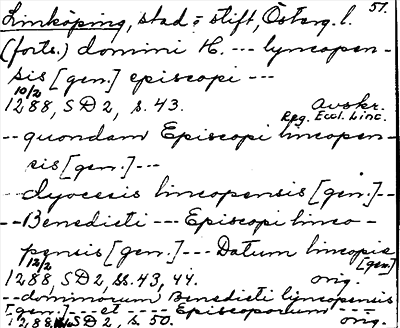 Linköping, stad = stift, Österg. l. 51.
(forts.) domini H. --- lyncopen-
sis [gen.] episcopi ---
10/2
1288, SD 2, s. 43. Avskr.
Reg. Eccl. Linc.
-- quondam Episcopi lincopen-
sis [gen.] ---
-- dyocesis lincopensis [gen.] --
-- Benedicti --- Episcopi linco-
pensis [gen.] --- Datum lincopie
[gen.]
12/2
1288, SD 2, ss. 43, 44. orig.
-- dominorum Benedicti lyncopensis
[gen.] --- et ---- Episcoporum ---
1288, SD 2, s. 50. orig.